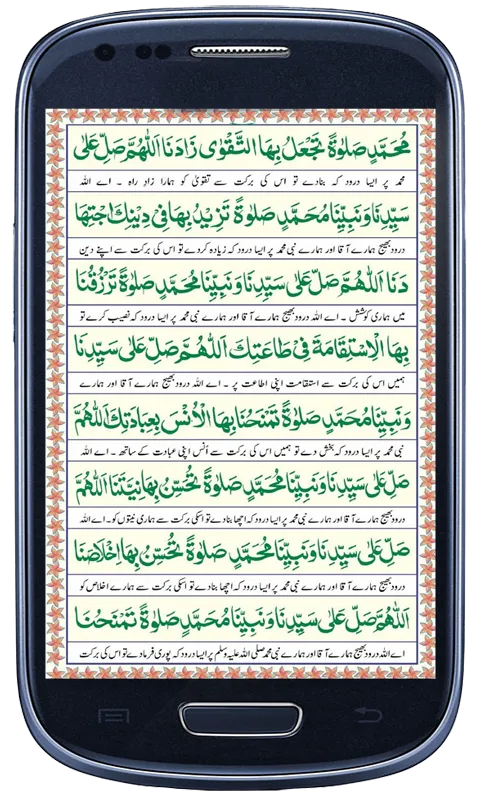 مُحَمَّدٍ صَلٰوةً تَجْعَلُ بِهَا التَّقْوٰى زَادَنَا اَللّٰهُمَّ صَلِّ عَلٰى
محمد پر ایسا درود کہ بنادے تو اس کی برکت سے تقویٰ کو ہمارا زادِ راہ ۔ اے اللہ
سَيِّدِنَا وَنَبِيِّنَا مُحَمَّدٍ صَلٰوةً تَزِيْدُ بِهَا فِىْ دِيْنِكَ اجْتِهَا
درود بھیج ہمارے آقا اور ہمارے نبی محمد پر ایسا درود کہ زیادہ کردے تو اس کی برکت سے اپنے دین
دَنَا اَللّٰهُمَّ صَلِّ عَلٰى سَيِّدِنَا وَنَبِيِّنَا مُحَمَّدٍ صَلٰوةً تَرْزُقُنَا
میں ہماری کوشش ۔ اے اللہ درود بھیج ہمارے آقا اور ہمارے نبی محمد پر ایسا درود کہ نصیب کرے تو
بِهَا الْاِسْتِقَامَةَ فِىْ طَاعَتِكَ اَللّٰهُمَّ صَلِّ عَلٰى سَيِّدِنَا
ہمیں اس کی برکت سے استقامت اپنی اطاعت پر ۔ اے اللہ درود بھیج ہمارے آقا اور ہمارے
وَنَبِيِّنَا مُحَمَّدٍ صَلٰوةً تَمْنَحُنَا بِهَا الْاُنْسَ بِعِبَادَتِكَ اَللّٰهُمَّ
نبی محمد پر ایسا درود کہ بخش دے تو ہمیں اس کی برکت سے اُنس اپنی عبادت کے ساتھ ۔ اے اللہ
صَلِّ عَلٰى سَيِّدِنَا وَنَبِيِّنَا مُحَمَّدٍ صَلٰوةً تُحَسِّنُ بِهَا نِيَّتَنَا اَللّٰهُمَّ
درود بھیج ہمارے آقا اور ہمارے نبی محمد پر ایسا درود کہ اچھا بنادے تو اسکی برکت سے ہماری نیتوں کو۔ اے اللہ
صَلِّ عَلٰى سَيِّدِنَا وَنَبِيِّنَا مُحَمَّدٍ صَلٰوةً تُحَسِّنُ بِهَا اِخْلَاصَنَا
درود بھیج ہمارے آقا اور ہمارے نبی محمد پر ایسا درود کہ اچھا بنادے تو اسکی برکت سے ہمارے اخلاص کو
اَللّٰهُمَّ صَلِّ عَلٰى سَيِّدِنَا وَنَبِيِّنَا مُحَمَّدٍ صَلٰوةً تَمْنَحُنَا
اے اللہ درود بھیج ہمارے آقا اور ہمارے نبی محمد صلی اللہ علیہ وسلم پر ایسا درود کہ پوری فرمادے تو اس کی برکت